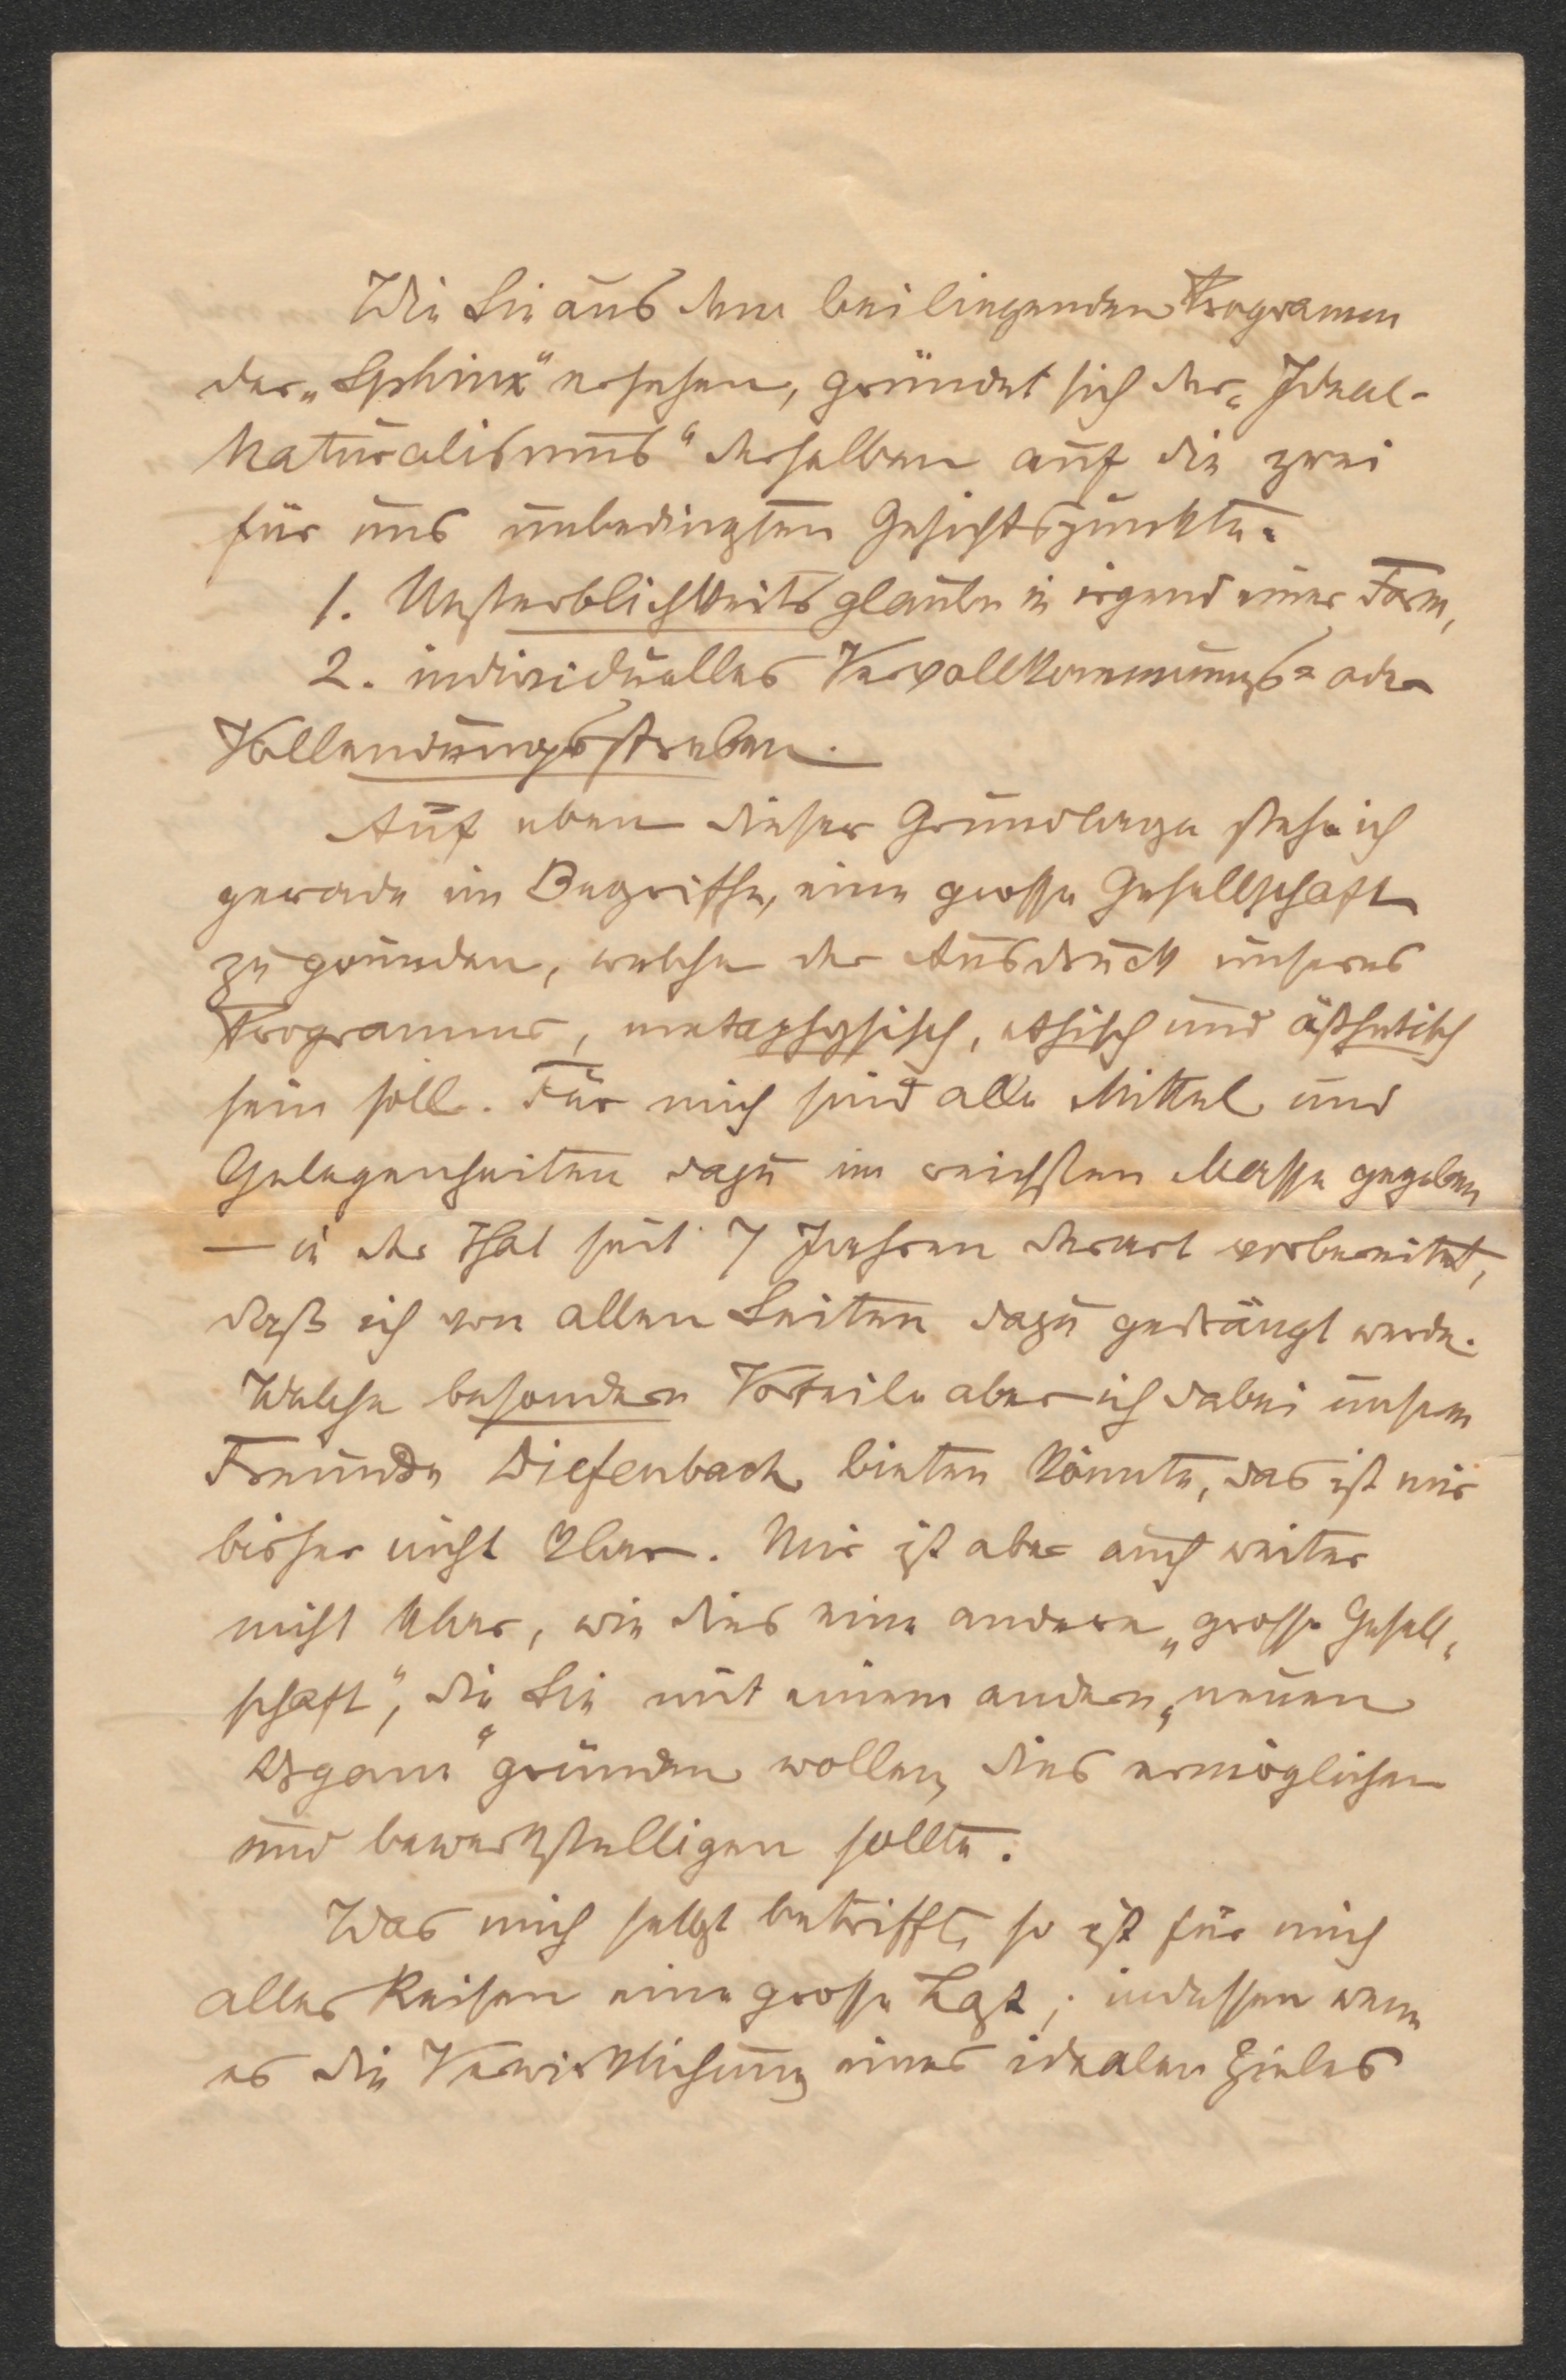 Wie Sie aus dem beiliegenden Programm
der „Sphinx“ ersehen, gründet sich der „Ideal-
Naturalismus“ derselben auf die zwei
für uns unbedingten Gesichtspunkte:
1. Unsterblichkeitsglaube in irgend einer Form,
2. individuelles Vervollkommnungs= oder
Vollendungsstreben.
Auf eben dieser Grundlage stehe ich
gerade im Begriffe, eine grosse Gesellschaft
zu gründen, welche der Ausdruck unseres
Programms, metaphysisch, ethisch und ästhetisch
sein soll. Für mich sind alle Mittel und
Gelegenheiten dazu im reichsten Masse gegeben
— in der That seit 7 Jahren derart vorbereitet,
daß ich von allen Seiten dazu gedrängt werde.
Welche besondern Vorteile aber ich dabei unserm
Freunde Diefenbach bieten könnte, das ist mir
bisher nicht klar. Mir ist aber auch weiter
nicht klar, wie dies eine andere „grosse Gesell-
schaft“, die Sie mit einem andern „neuen
Organ“ gründen wollen, dies ermöglichen
und bewerkstelligen sollte.
Was mich selbst betrifft, so ist für mich
alles Reisen eine grosse Last; indessen wenn
es die Verwirklichung eines idealen Zieles